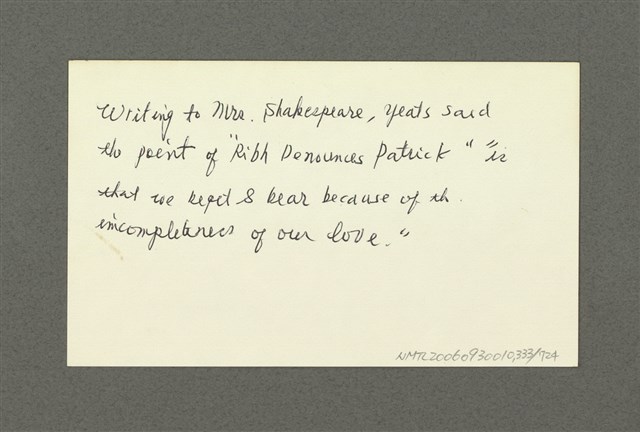 Writing to Mrs. Shakespeare, Yeats said
the point of "Ribh Denounces Patrick" "is
that we beget & bear because of th.
incompleteness of our love."
NMTL20060930010,333/724